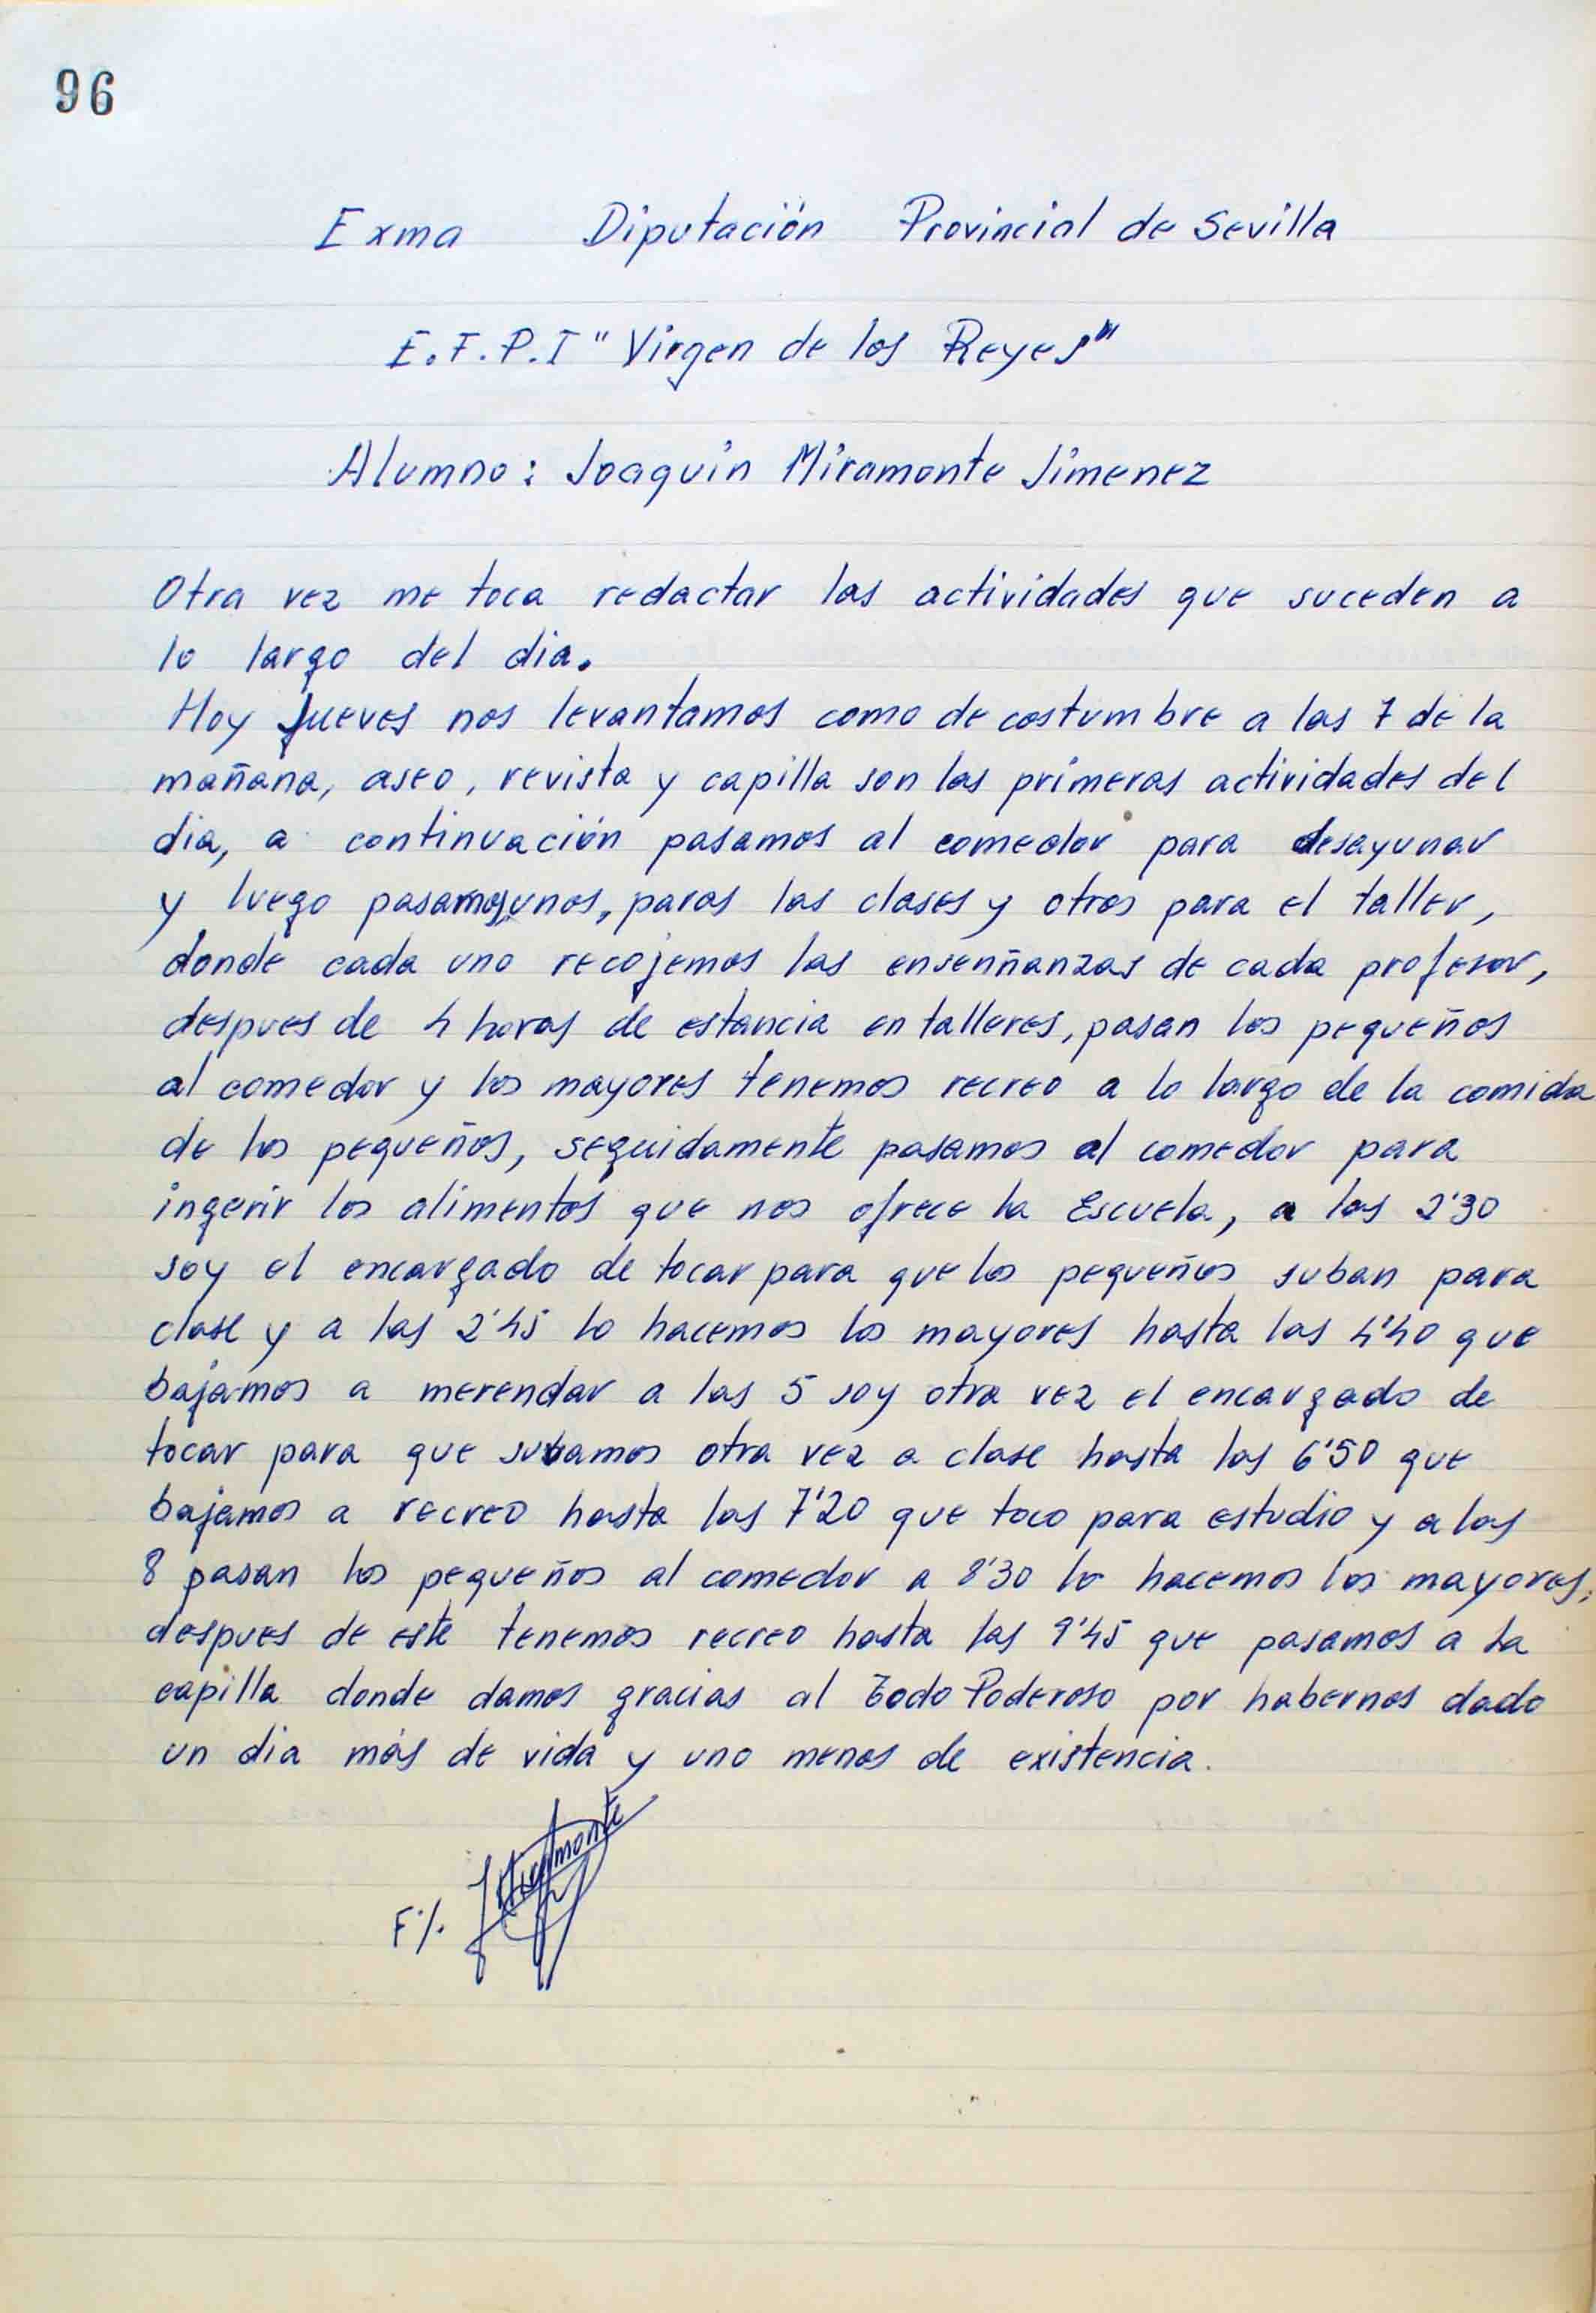 96
Exma Diputación Provincial de Sevilla
E.F.P.I "Virgen de los Reyes"
Alumno: Joaquin Miramonte Jimenez
Otra vez me toca redactar las actividades que suceden a
lo largo del dia.
Hoy Jueves nos levantamos como de costumbre a las 7 de la
mañana, aseo, revista y capilla son las primeras actividades del
dia, a continuación pasamos al comedor para desayunar
y luego pasamos,unos, paras las clases y otros para el taller,
donde cada uno recojemos las ensenñanzas de cada profesor,
despues de 4 horas de estancia en talleres, pasan los pequeños
al comedor y los mayores tenemos recreo a lo largo de la comida
de los pequeños, seguidamente pasamos al comedor para
ingerir los alimentos que nos ofrece la Escuela, a las 2'30
soy el encargado de tocar para que los pequeños suban para
clase y a las 2'45 lo hacemos los mayores hasta las 4'40 que
bajamos a merendar a las 5 soy otra vez el encargado de
tocar para que subamos otra vez a clase hasta las 6'50 que
bajamos a recreo hasta las 7'20 que toco para estudio y a las
8 pasan los pequeños al comedor a 8'30 lo hacemos los mayores,
despues de este tenemos recreo hasta las 9'45 que pasamos a la
capilla donde damos gracias al Todo Poderoso por habernos dado
un dia más de vida y uno menos de existencia.
F/. JMiramonte